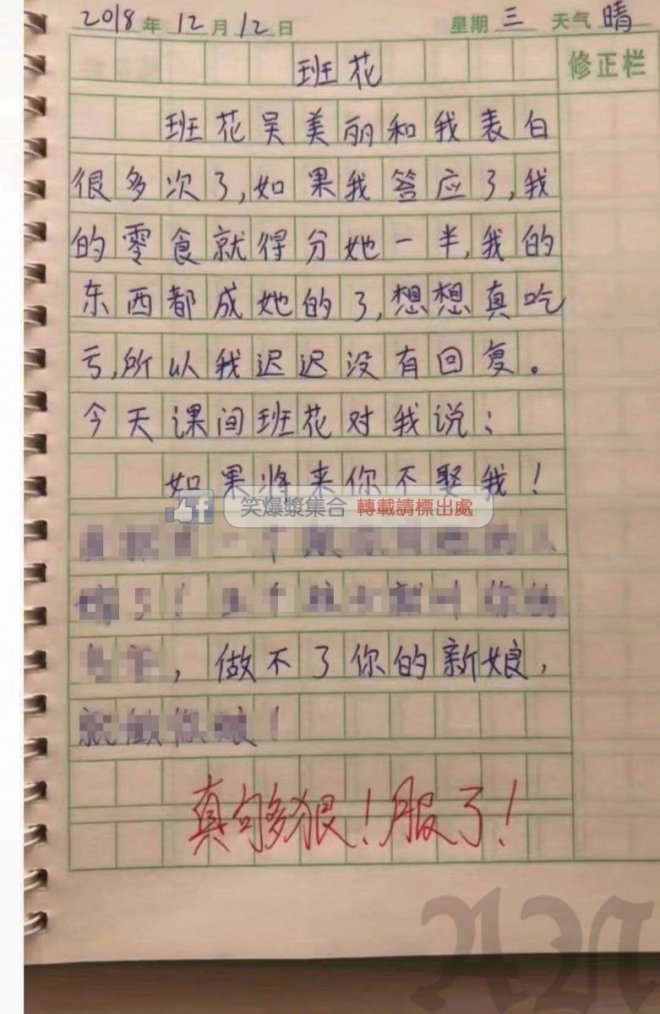 2018年12月12日 星期三 天气晴
班花
修正栏
班花吴美丽和我表白
很多次了,如果我答应了,我
的零食就得分她一半,我的
东西都成她的了,想想真吃
亏,所以我迟迟没有回复。
今天课间班花对我说:
如果将来你不娶我!
笑爆漿集合 轉載請標出處
,做不了你的新娘,
就做你娘!
真够狠!服了!
AN